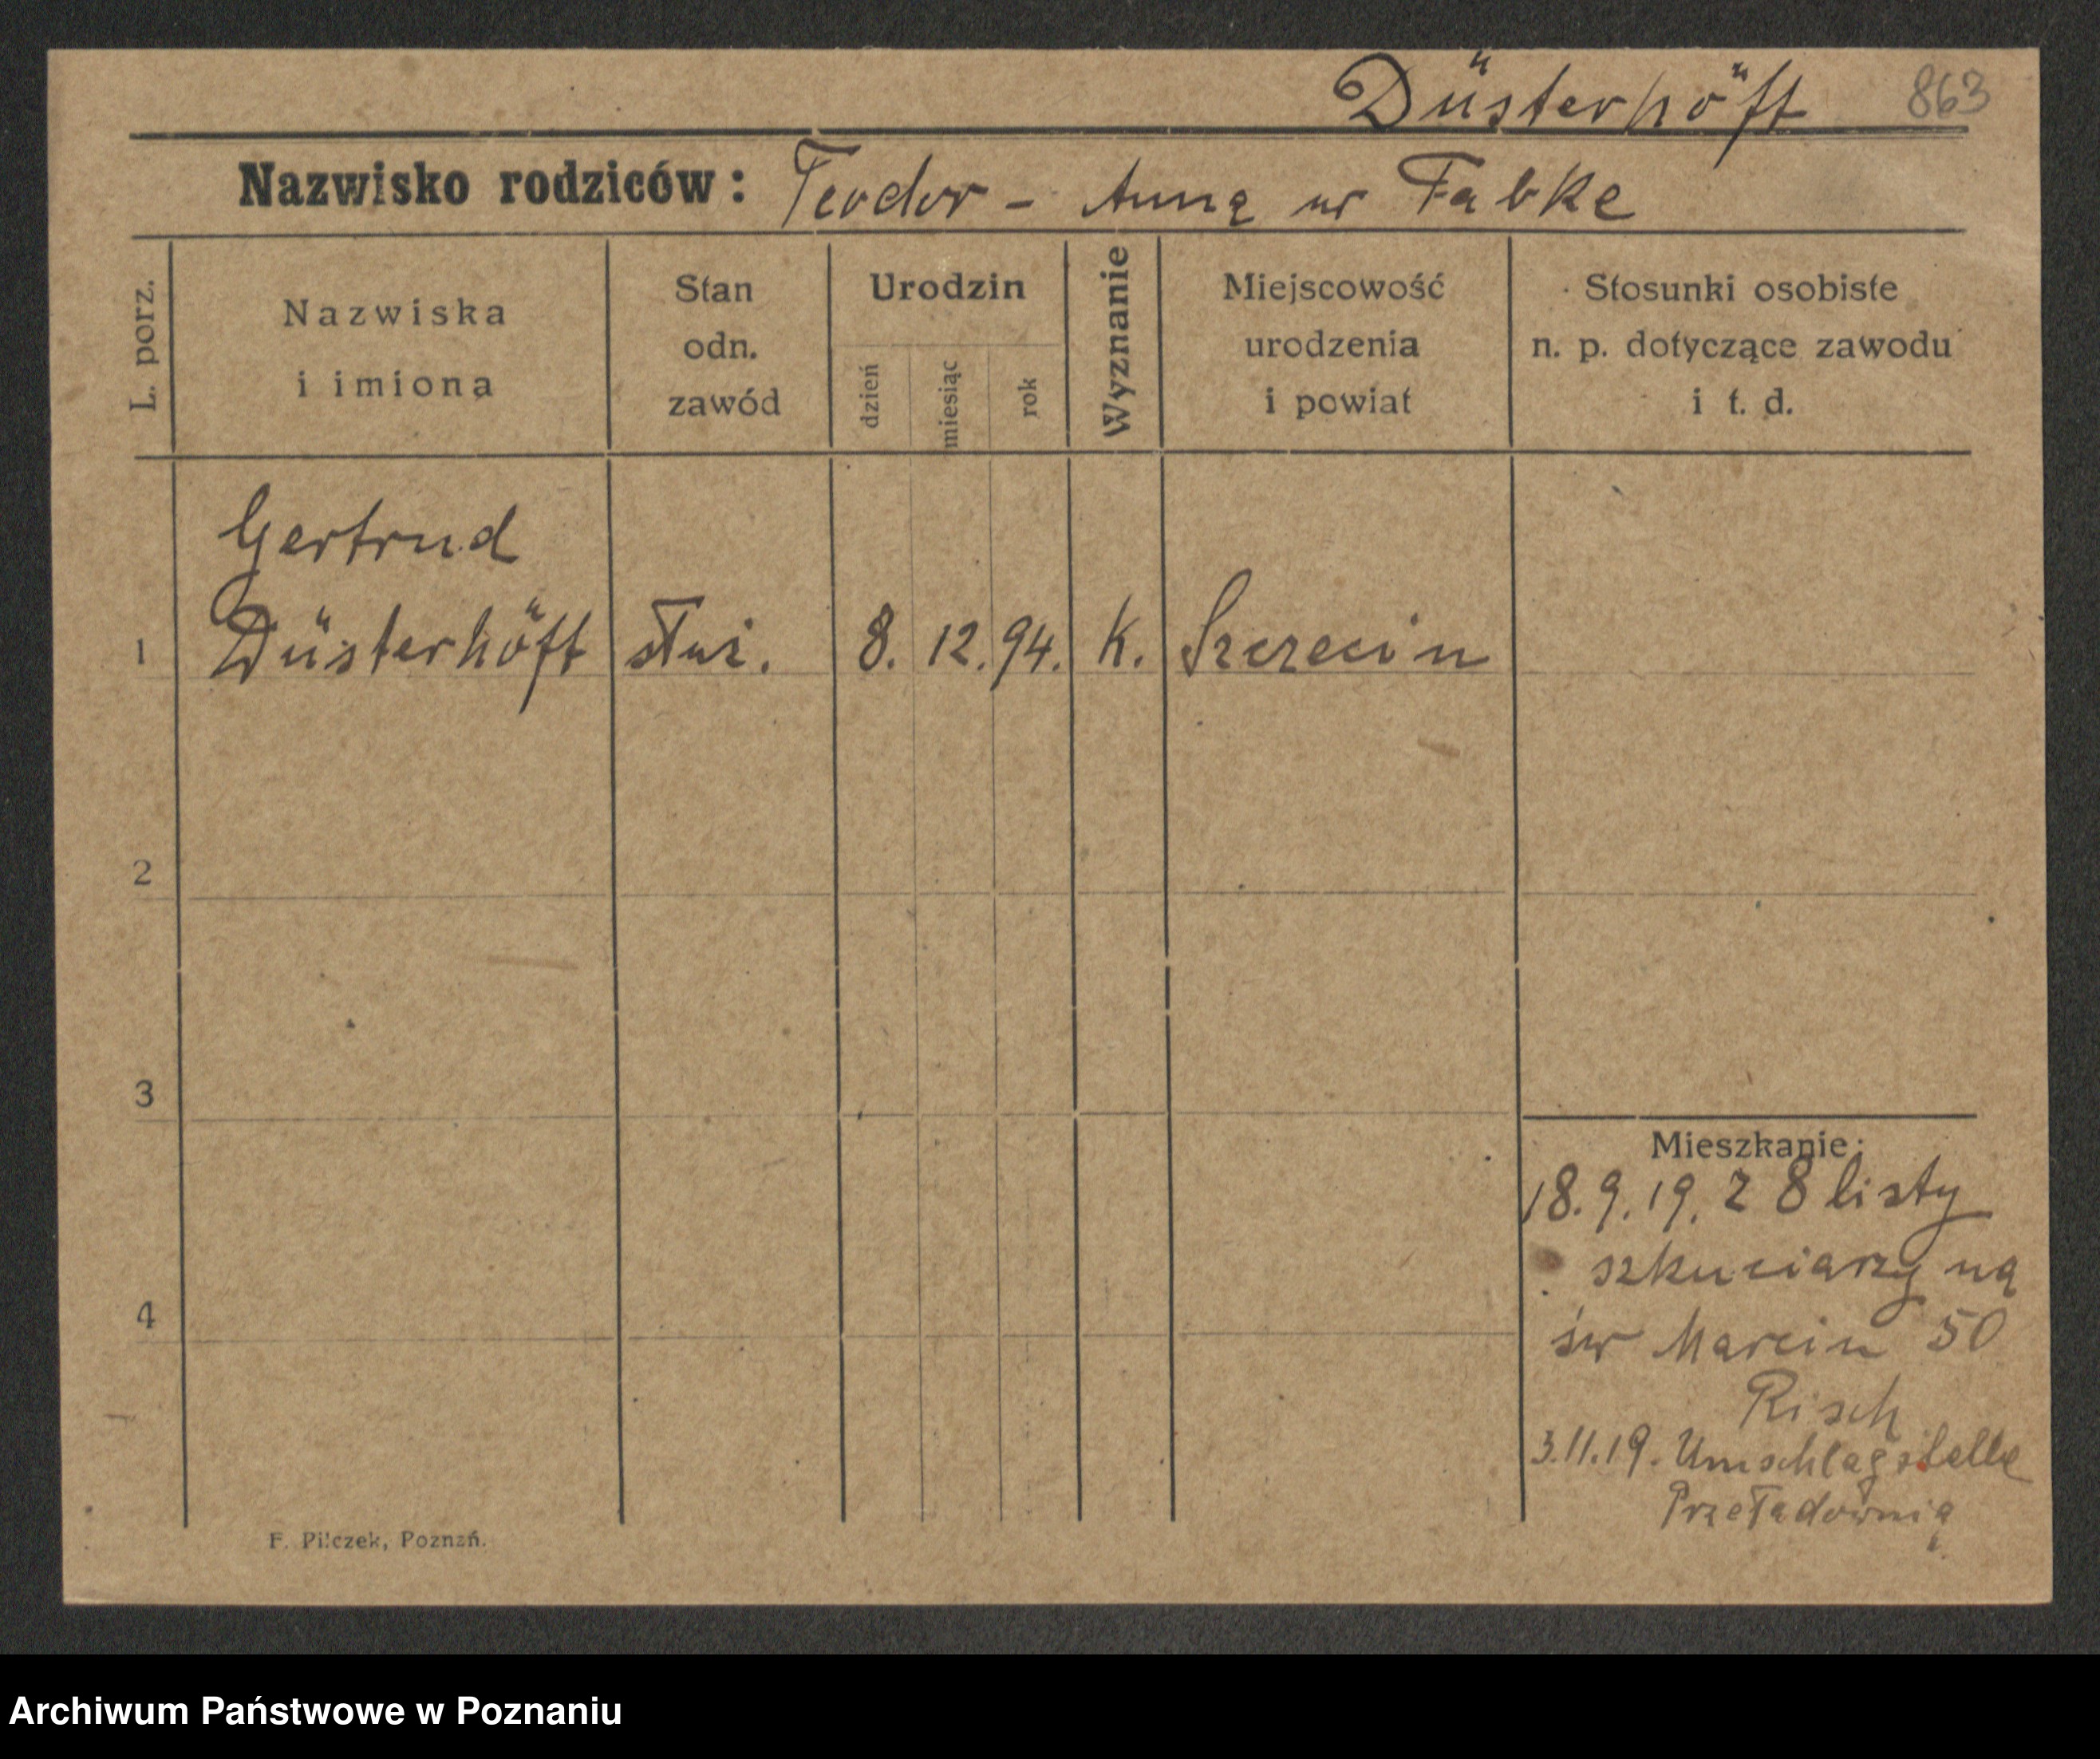 Düsterhöft 863
Nazwisko rodziców: Teodor - Anna ur Fabke
L. porz.
Nazwiska
i imiona
Stan
odn.
zawód
Urodzin
dzień
miesiąc
rok
Wyznanie
Miejscowość
urodzenia
i powiat
Stosunki osobiste
n. p. dotyczące zawodu
i t. d.
Gertrud
1 Düsterhöft służ. 8. 12. 94. K. Szczecin
2
3
4
Mieszkanie:
18.9.19. z 8 listy
szkuciarzy na
św Marcin 50
Risch
3.11.19. Umschlagstelle
Przeładownia
F. Pilczek, Poznań.
Archiwum Państwowe w Poznaniu